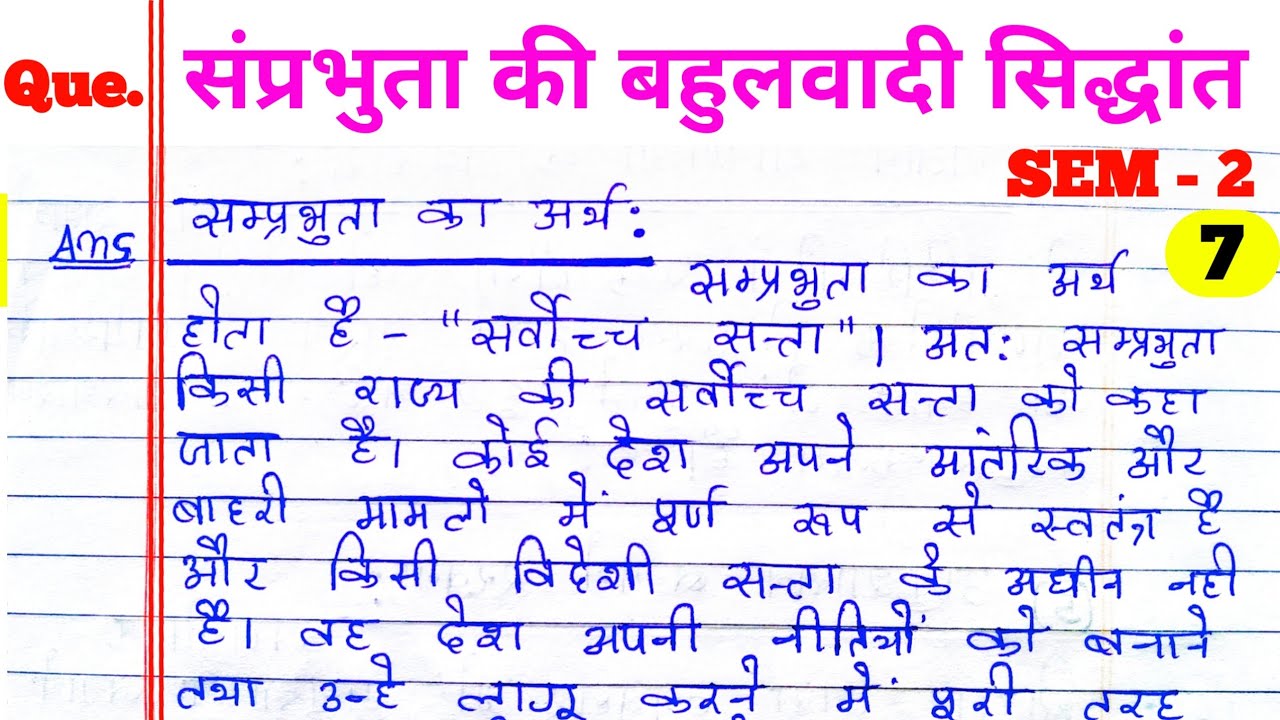 Que. संप्रभुता की बहुलवादी सिद्धांत
SEM - 2
7
Ans सम्प्रभुता का अर्थ:
सम्प्रभुता का अर्थ
होता है - "सर्वोच्च सत्ता"। अतः सम्प्रभुता
किसी राज्य की सर्वोच्च सत्ता को कहा
जाता है। कोई देश अपने आंतरिक और
बाहरी मामलो में पूर्ण रूप से स्वतंत्र है
और किसी विदेशी सत्ता के अधीन नही
है। वह देश अपनी नीतियों को बनाने
तथा उन्हे लागू करने में पूरी तरह